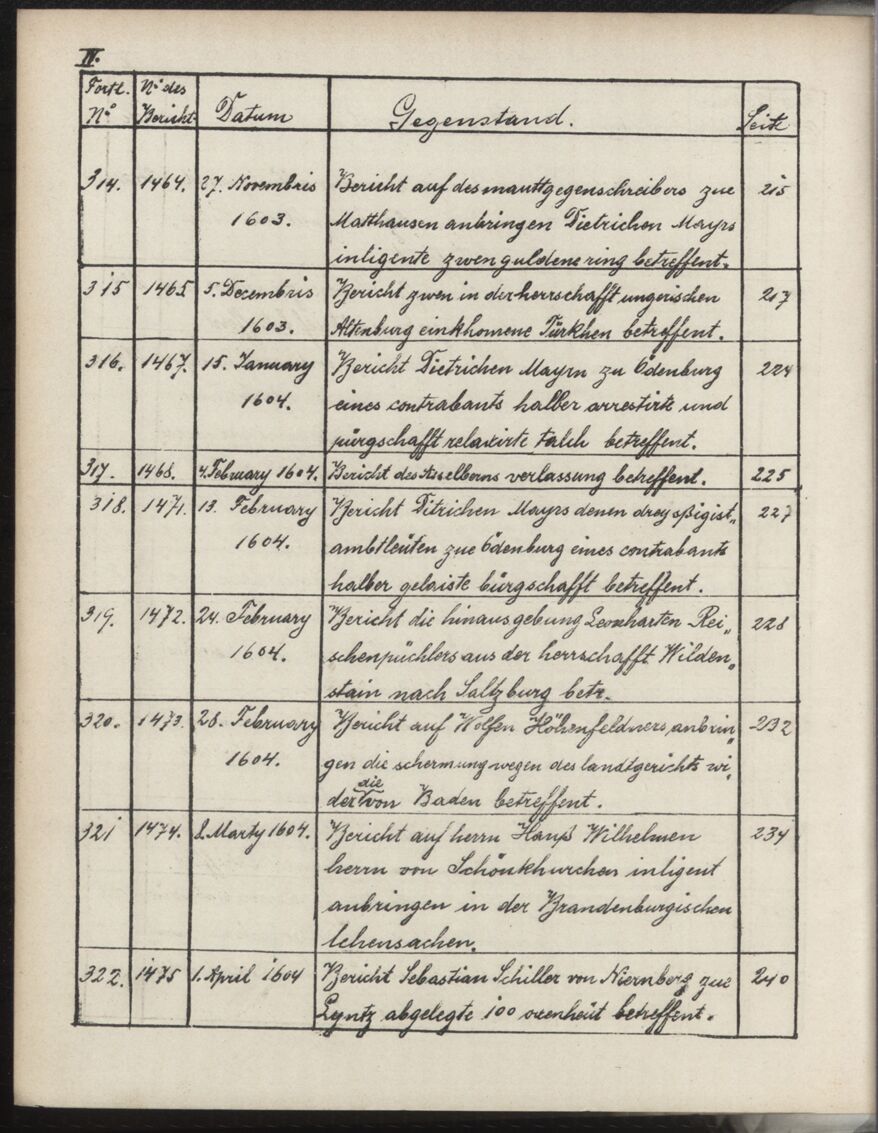 IV.
Fortl. No des
No Bericht Datum Gegenstand. Seite
314. 1464. 27. Novembris Bericht auf des mauttgegenschreibers zue 215
1603. Matthausen anbringen Dietrichen Mayrs
inligente zwen guldene ring betreffent.
315 1465 5. Decembris Bericht zwen in der herrschafft ungerischen 217
1603. Altenburg einkhomene Türkhen betreffent.
316. 1467. 15. January Bericht Dietrichen Mayrn zu Ödenburg 224
1604. eines contrabants halber arrestirte und
pürgschafft relaxirte talch betreffent.
317. 1468. 4. February 1604. Bericht des verlassung betreffent. 225
318. 1471. 13. February Bericht Ditrichen Mayrs denen dreyssigist„ 227
1604. ambtleüten zue Ödenburg eines contrabants
halber gelaiste bürgschafft betreffent.
319. 1472. 24. February Bericht die hinausgebung Leonharten Rei„ 228
1604. schenpüchlers aus der herrschafft Wilden„
stain nach Saltzburg betr.
320. 1473. 28. February Bericht auf Wolfen Höhenfeldners anbrin„ 232
1604. gen die schermung wegen des landtgerichts wi„
der die von Baden betreffent.
321 1474. 8. Marty 1604. Bericht auf herrn Hanß Wilhelmen 234
herrn von Schönkhurchen inligent
anbringen in der Brandenburgischen
lehensachen.
322. 1475 1. April 1604 Bericht Sebastian Schiller von Niernberg zue 240
Lyntz abgelegte 100 oxenheüt betreffent.